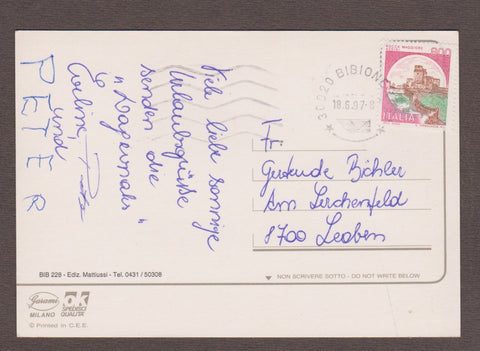 Viele liebe sonnige
Urlaubsgrüße
senden die
und
PETER
ROCCA MAGGIORE
800
ITALIA
30020 BIBIONE
18.6.97-8
Fr.
Gertrude Bichler
Am Lerchenfeld
8700 Leoben
BIB 228 - Ediz. Mattiussi - Tel. 0431 / 50308
NON SCRIVERE SOTTO - DO NOT WRITE BELOW
Garami
MILANO
OK
SPEDISCI
QUALITA'
© Printed in C.E.E.